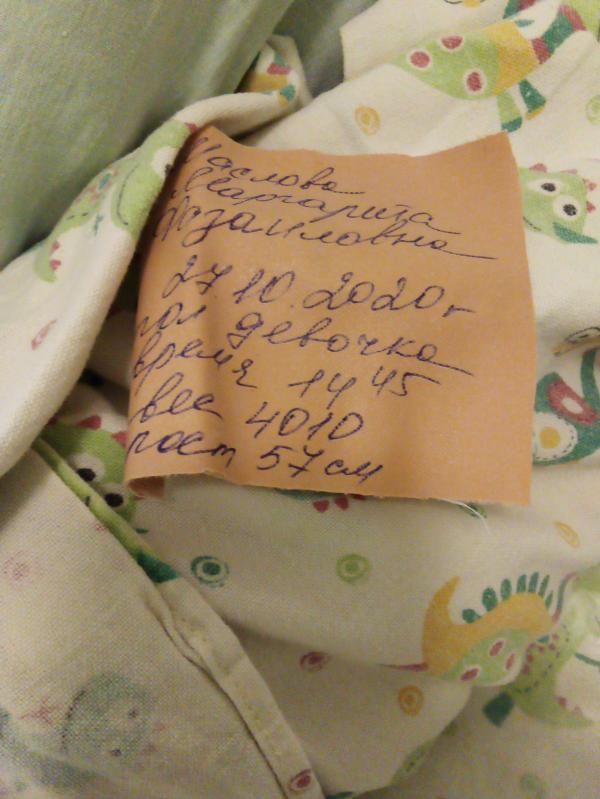 Маслова
Маргарита
Исзаиловна
27.10.2020г
пол девочка
время 14 45
вес 4010
рост 57 см